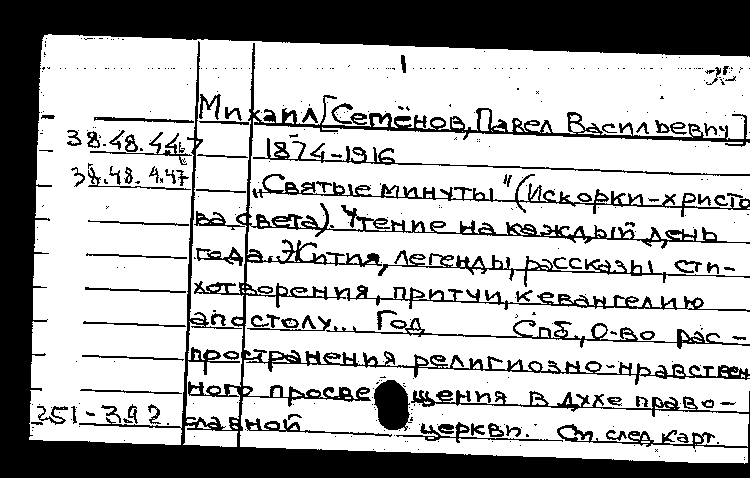 Михаил [Семёнов, Павел Васильевич]
38.48.447
1874-1916
38.48.4.47
„Святые минуты" (Искорки-христо
ва света). Чтение на каждый день
года. Жития, легенды, рассказы, сти-
хотворения, притчи, к евангелию
апостолу... Год Спб., О-во рас-
пространения религиозно-нравствен
ного просвещения в духе право-
251-392 славной церкви. См. след. карт.